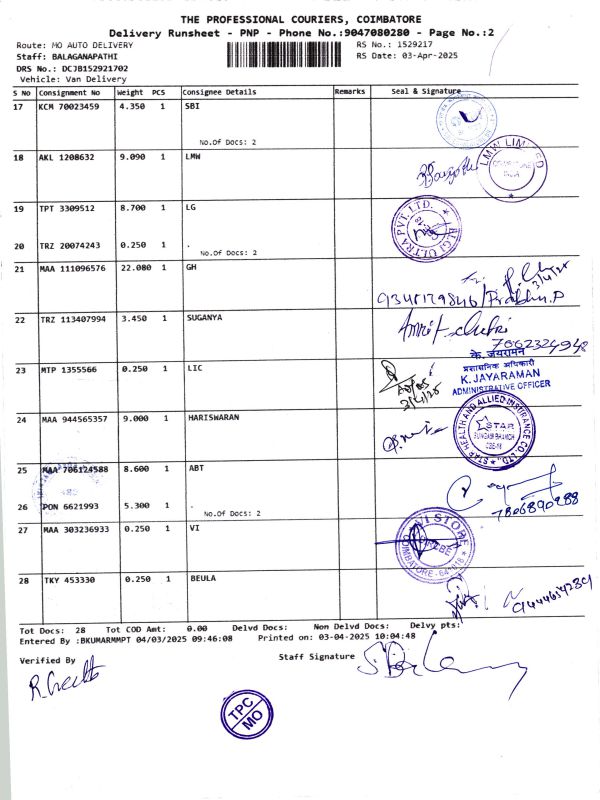 THE PROFESSIONAL COURIERS, COIMBATORE
Delivery Runsheet - PNP - Phone No.:9047080280 - Page No.:2
Route: MO AUTO DELIVERY RS No.: 1529217
Staff: BALAGANAPATHI RS Date: 03-Apr-2025
DRS No.: DCJB152921702
Vehicle: Van Delivery
S No Consignment No Weight PCS Consignee Details Remarks Seal & Signature
17 KCM 70023459 4.350 1 SBI
No.Of Docs: 2
18 AKL 1208632 9.090 1 LMW
LMW LIMITED
19 TPT 3309512 8.700 1 LG
ELGI ULTRA PVT. LTD.
20 TRZ 20074243 0.250 1 .
No.Of Docs: 2
21 MAA 111096576 22.080 1 GH
3/4/25
9345179846/Prabhu.P
22 TRZ 113407994 3.450 1 SUGANYA
7062324948
23 MTP 1355566 0.250 1 LIC
के. जयरामन
प्रशासनिक अधिकारी
K. JAYARAMAN
ADMINISTRATIVE OFFICER
3/4/25
24 MAA 944565357 9.000 1 HARISWARAN
STAR HEALTH AND ALLIED INSURANCE CO. LTD.
STAR
25 MAA 706124588 8.600 1 ABT
26 PON 6621993 5.300 1 .
No.Of Docs: 2
7806890988
27 MAA 303236933 0.250 1 VI
VI STORE
COIMBATORE - 641018
28 TKY 453330 0.250 1 BEULA
Tot Docs: 28 Tot COD Amt: 0.00 Delvd Docs: Non Delvd Docs: Delvy pts:
Entered By :BKUMARMMPT 04/03/2025 09:46:08 Printed on: 03-04-2025 10:04:48
Verified By Staff Signature
TPC
MO